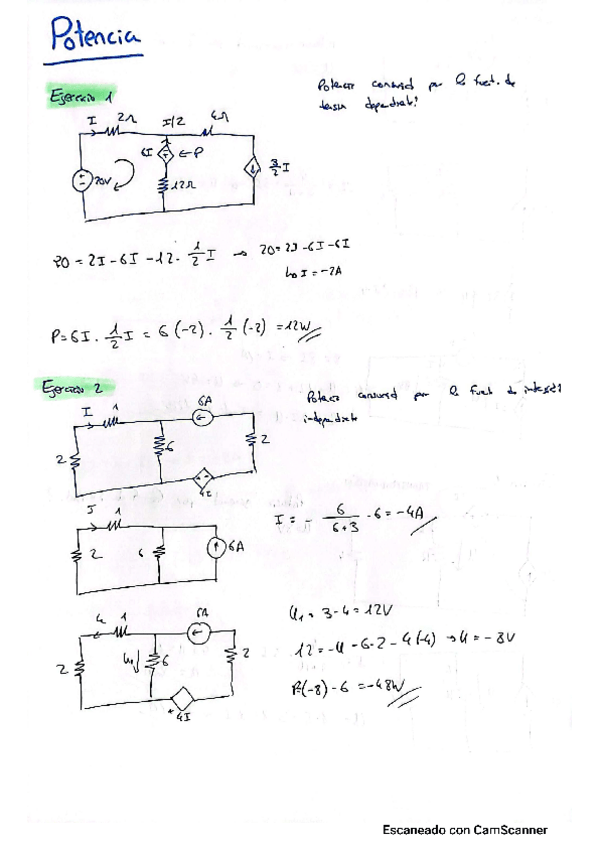 Potencia
Ejercicio 1
Potencia consumid por la fuent. de
tensión dependiente?
I 2Ω I/2 4Ω
6I ← P
20V 12Ω 3/2 I
20 = 2I - 6I - 12 · 1/2 I → 20 = 2I - 6I - 6I
↳ I = -2A
P = 6I · 1/2 I = 6 (-2) · 1/2 (-2) = 12W
Ejercicio 2
Potencia consumid por la fuent de intensid
independiente
I 1 6A
2 6 2
4I
I 1
2 6 6A
I = - 6/6+3 · 6 = -4A
4 1 6A
2 U₁ 6 2
+ 4I
U₁ = 3·4 = 12V
12 = -U - 6·2 - 4(-4) → U = -8V
P = (-8) · 6 = -48W
Escaneado con CamScanner